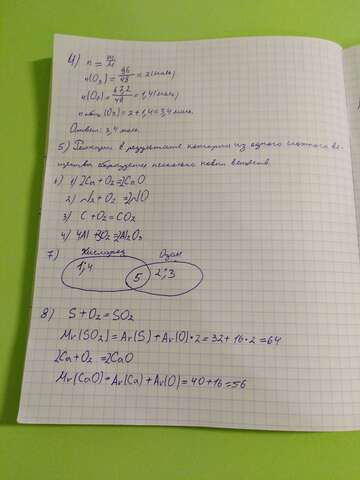 4) n = m/M
n(O₃) = 96/48 = 2(моль)
n(O₃) = 67,2/48 = 1,4(моль)
n общ(O₃) = 2 + 1,4 = 3,4 моль
Ответ: 3,4 моль.
5) Реакции в результате которых из одного сложного ве-
щества образуется несколько новых веществ.
6) 1) 2Ca + O₂ = 2CaO
2) N₂ + O₂ = 2NO
3) C + O₂ = CO₂
4) 4Al + 3O₂ = 2Al₂O₃
7) Кислород Озон
1;4 5 2;3
8) S + O₂ = SO₂
Mr(SO₂) = Ar(S) + Ar(O)·2 = 32 + 16·2 = 64
2Ca + O₂ = 2CaO
Mr(CaO) = Ar(Ca) + Ar(O) = 40 + 16 = 56